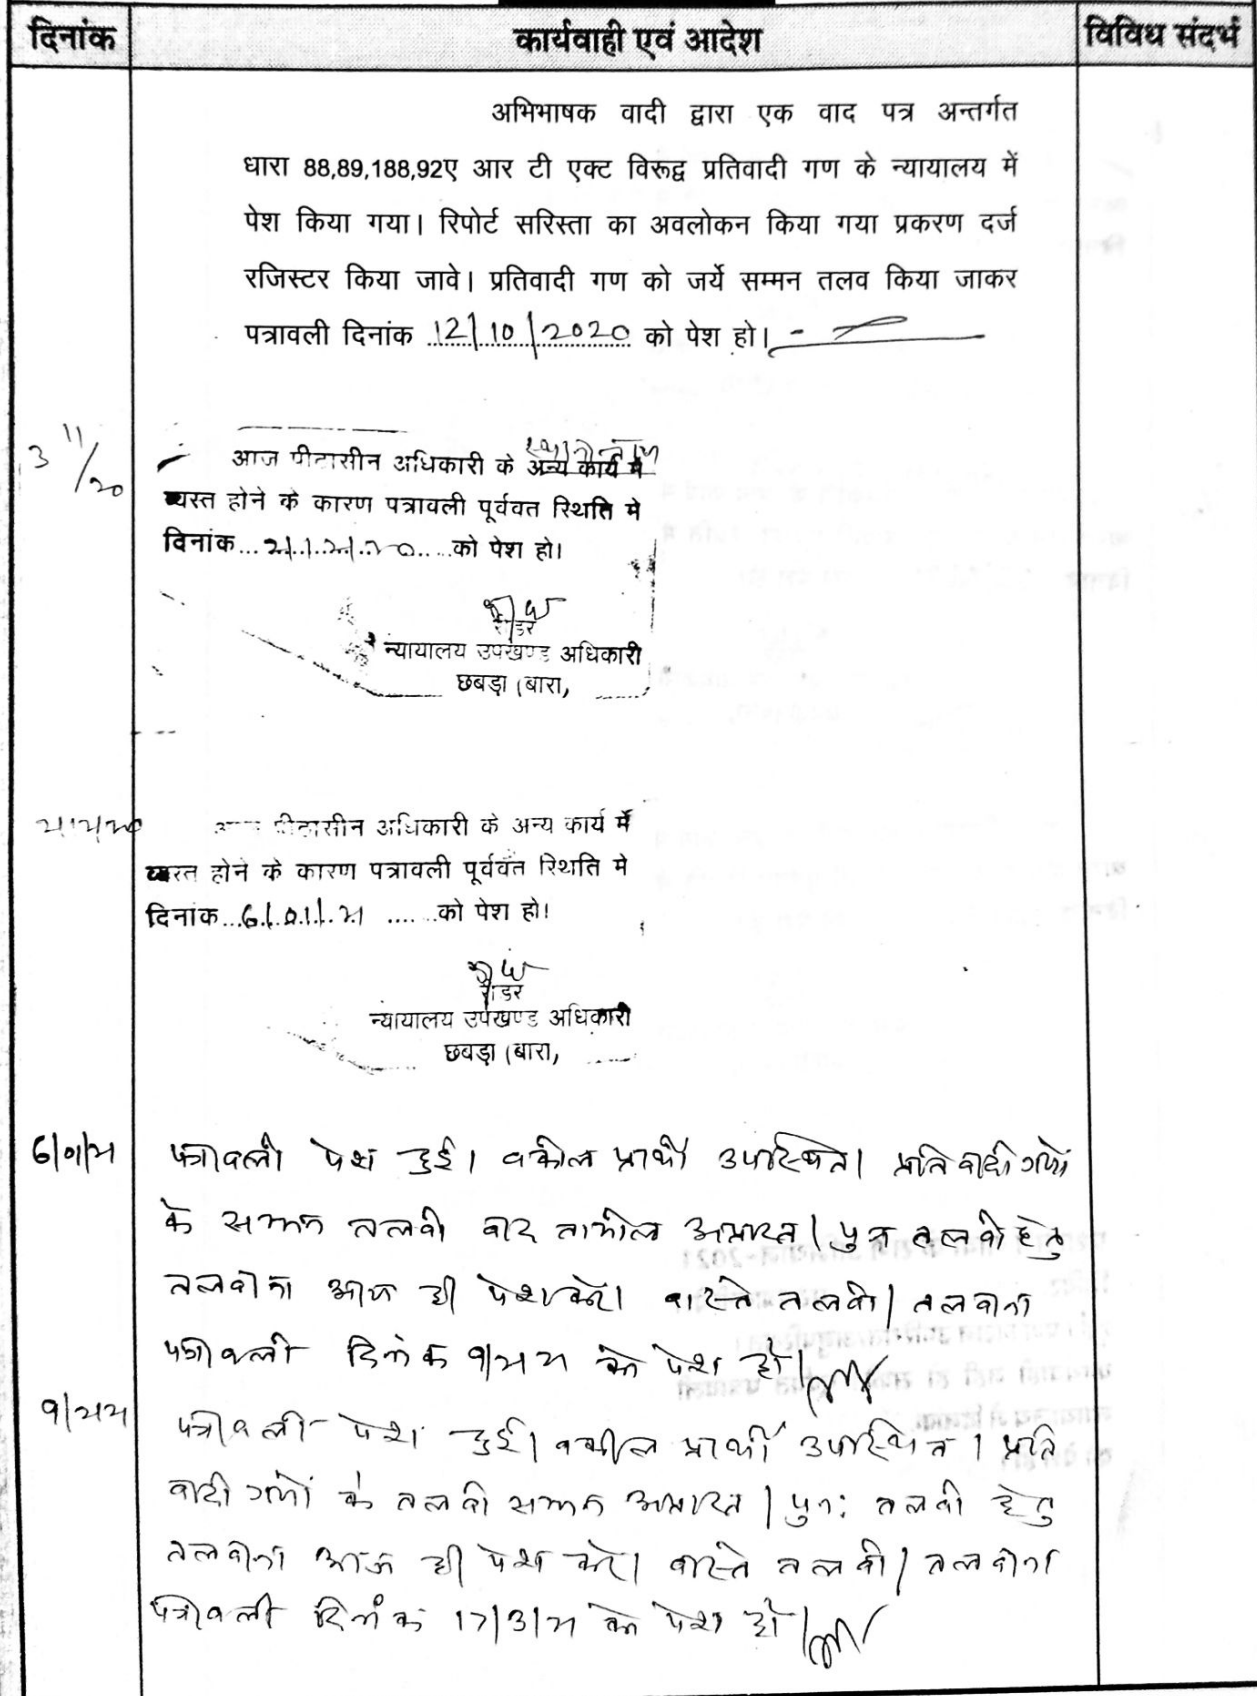 दिनांक कार्यवाही एवं आदेश विविध संदर्भ
अभिभाषक वादी द्वारा एक वाद पत्र अन्तर्गत
धारा 88,89,188,92ए आर टी एक्ट विरूद्व प्रतिवादी गण के न्यायालय में
पेश किया गया। रिपोर्ट सरिस्ता का अवलोकन किया गया प्रकरण दर्ज
रजिस्टर किया जावे। प्रतिवादी गण को जर्ये सम्मन तलव किया जाकर
पत्रावली दिनांक 12/10/2020 को पेश हो।
3/11/20
आज पीठासीन अधिकारी के अन्य कार्य मे
व्यस्त होने के कारण पत्रावली पूर्ववत स्थिति मे
दिनांक...2/12/20.....को पेश हो।
रीडर
न्यायालय उपखण्ड अधिकारी
छबड़ा (बारा,
2/12/20 आज पीठासीन अधिकारी के अन्य कार्य में
व्यस्त होने के कारण पत्रावली पूर्ववत स्थिति मे
दिनांक...6/01/21 ......को पेश हो।
रीडर
न्यायालय उपखण्ड अधिकारी
छबड़ा (बारा,
6/01/21 पत्रावली पेश हुई। वकील प्रार्थी उपस्थित। प्रतिवादी गणों
के सम्मन तलवी बाद तामील अप्राप्त। पुनः तलवी हेतु
तलवाना आज ही पेश करें। वास्ते तलवी। तलवाना
पत्रावली दिनांक 9/2/21 को पेश हो।
9/2/21 पत्रावली पेश हुई। वकील प्रार्थी उपस्थित। प्रति
वादी गणों के तलवी सम्मन अप्राप्त। पुनः तलवी हेतु
तलवाना आज ही पेश करें। वास्ते तलवी। तलवाना
पत्रावली दिनांक 17/3/21 को पेश हो।